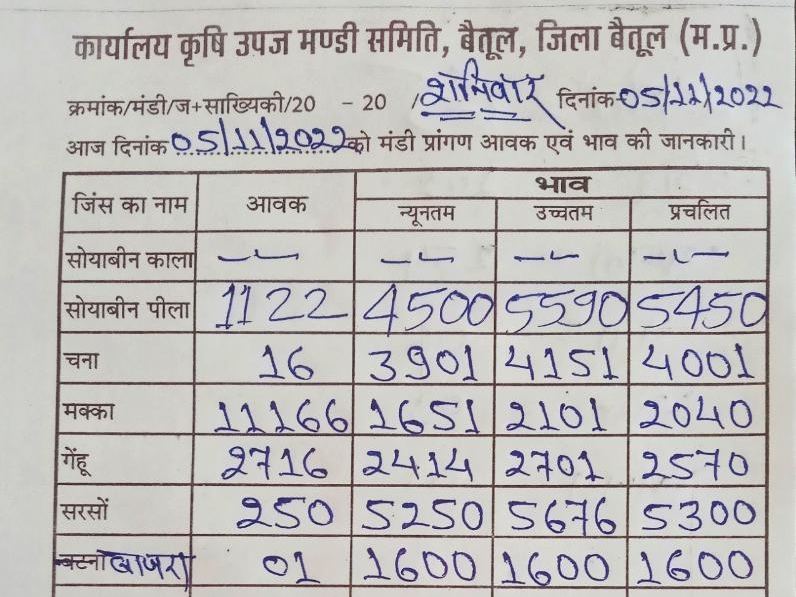 कार्यालय कृषि उपज मण्डी समिति, बैतूल, जिला बैतूल (म.प्र.)
क्रमांक/मंडी/ज+साख्यिकी/20 - 20 /शनिवार दिनांक 05/11/2022
आज दिनांक 05/11/2022 को मंडी प्रांगण आवक एवं भाव की जानकारी।
जिंस का नाम आवक भाव
न्यूनतम उच्चतम प्रचलित
सोयाबीन काला -- -- -- --
सोयाबीन पीला 1122 4500 5590 5450
चना 16 3901 4151 4001
मक्का 11166 1651 2101 2040
गेंहू 2716 2414 2701 2570
सरसों 250 5250 5676 5300
बाजरा 01 1600 1600 1600